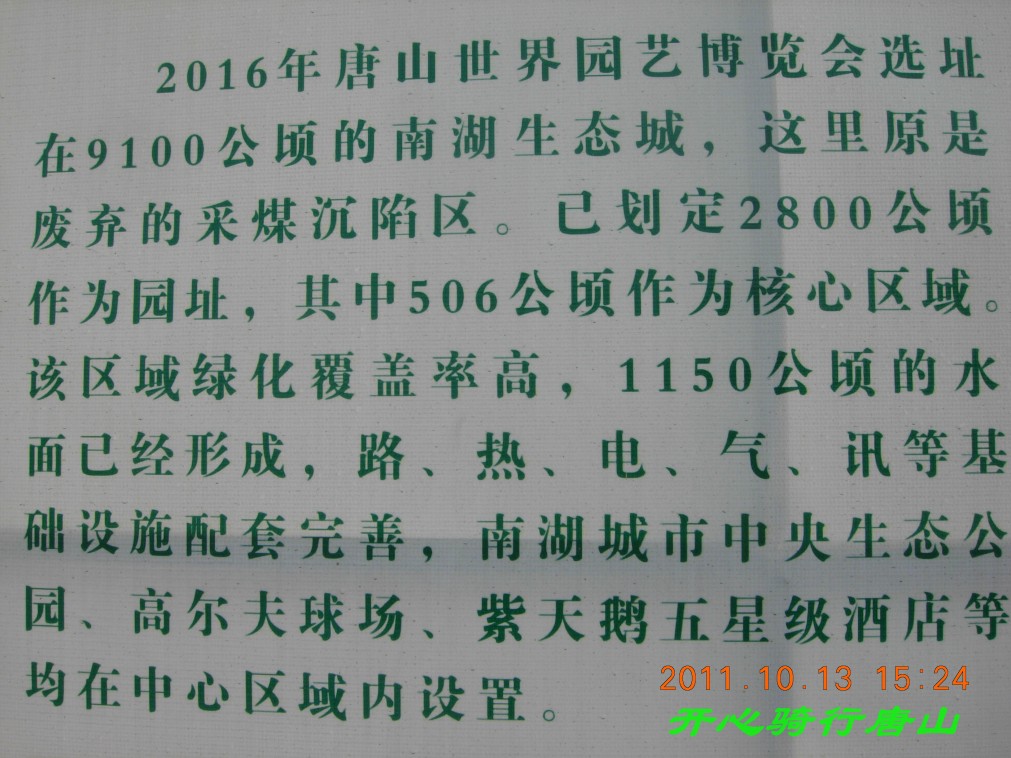 2016年唐山世界园艺博览会选址
在9100公顷的南湖生态城，这里原是
废弃的采煤沉陷区。已划定2800公顷
作为园址，其中506公顷作为核心区域。
该区域绿化覆盖率高，1150公顷的水
面已经形成，路、热、电、气、讯等基
础设施配套完善，南湖城市中央生态公
园、高尔夫球场、紫天鹅五星级酒店等
均在中心区域内设置。
2011.10.13 15:24
开心骑行唐山